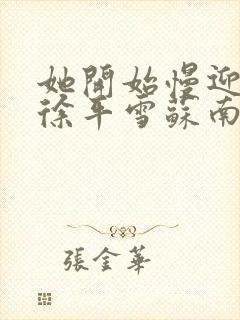 她開始慢迎
徐平雪蘇南
張金華